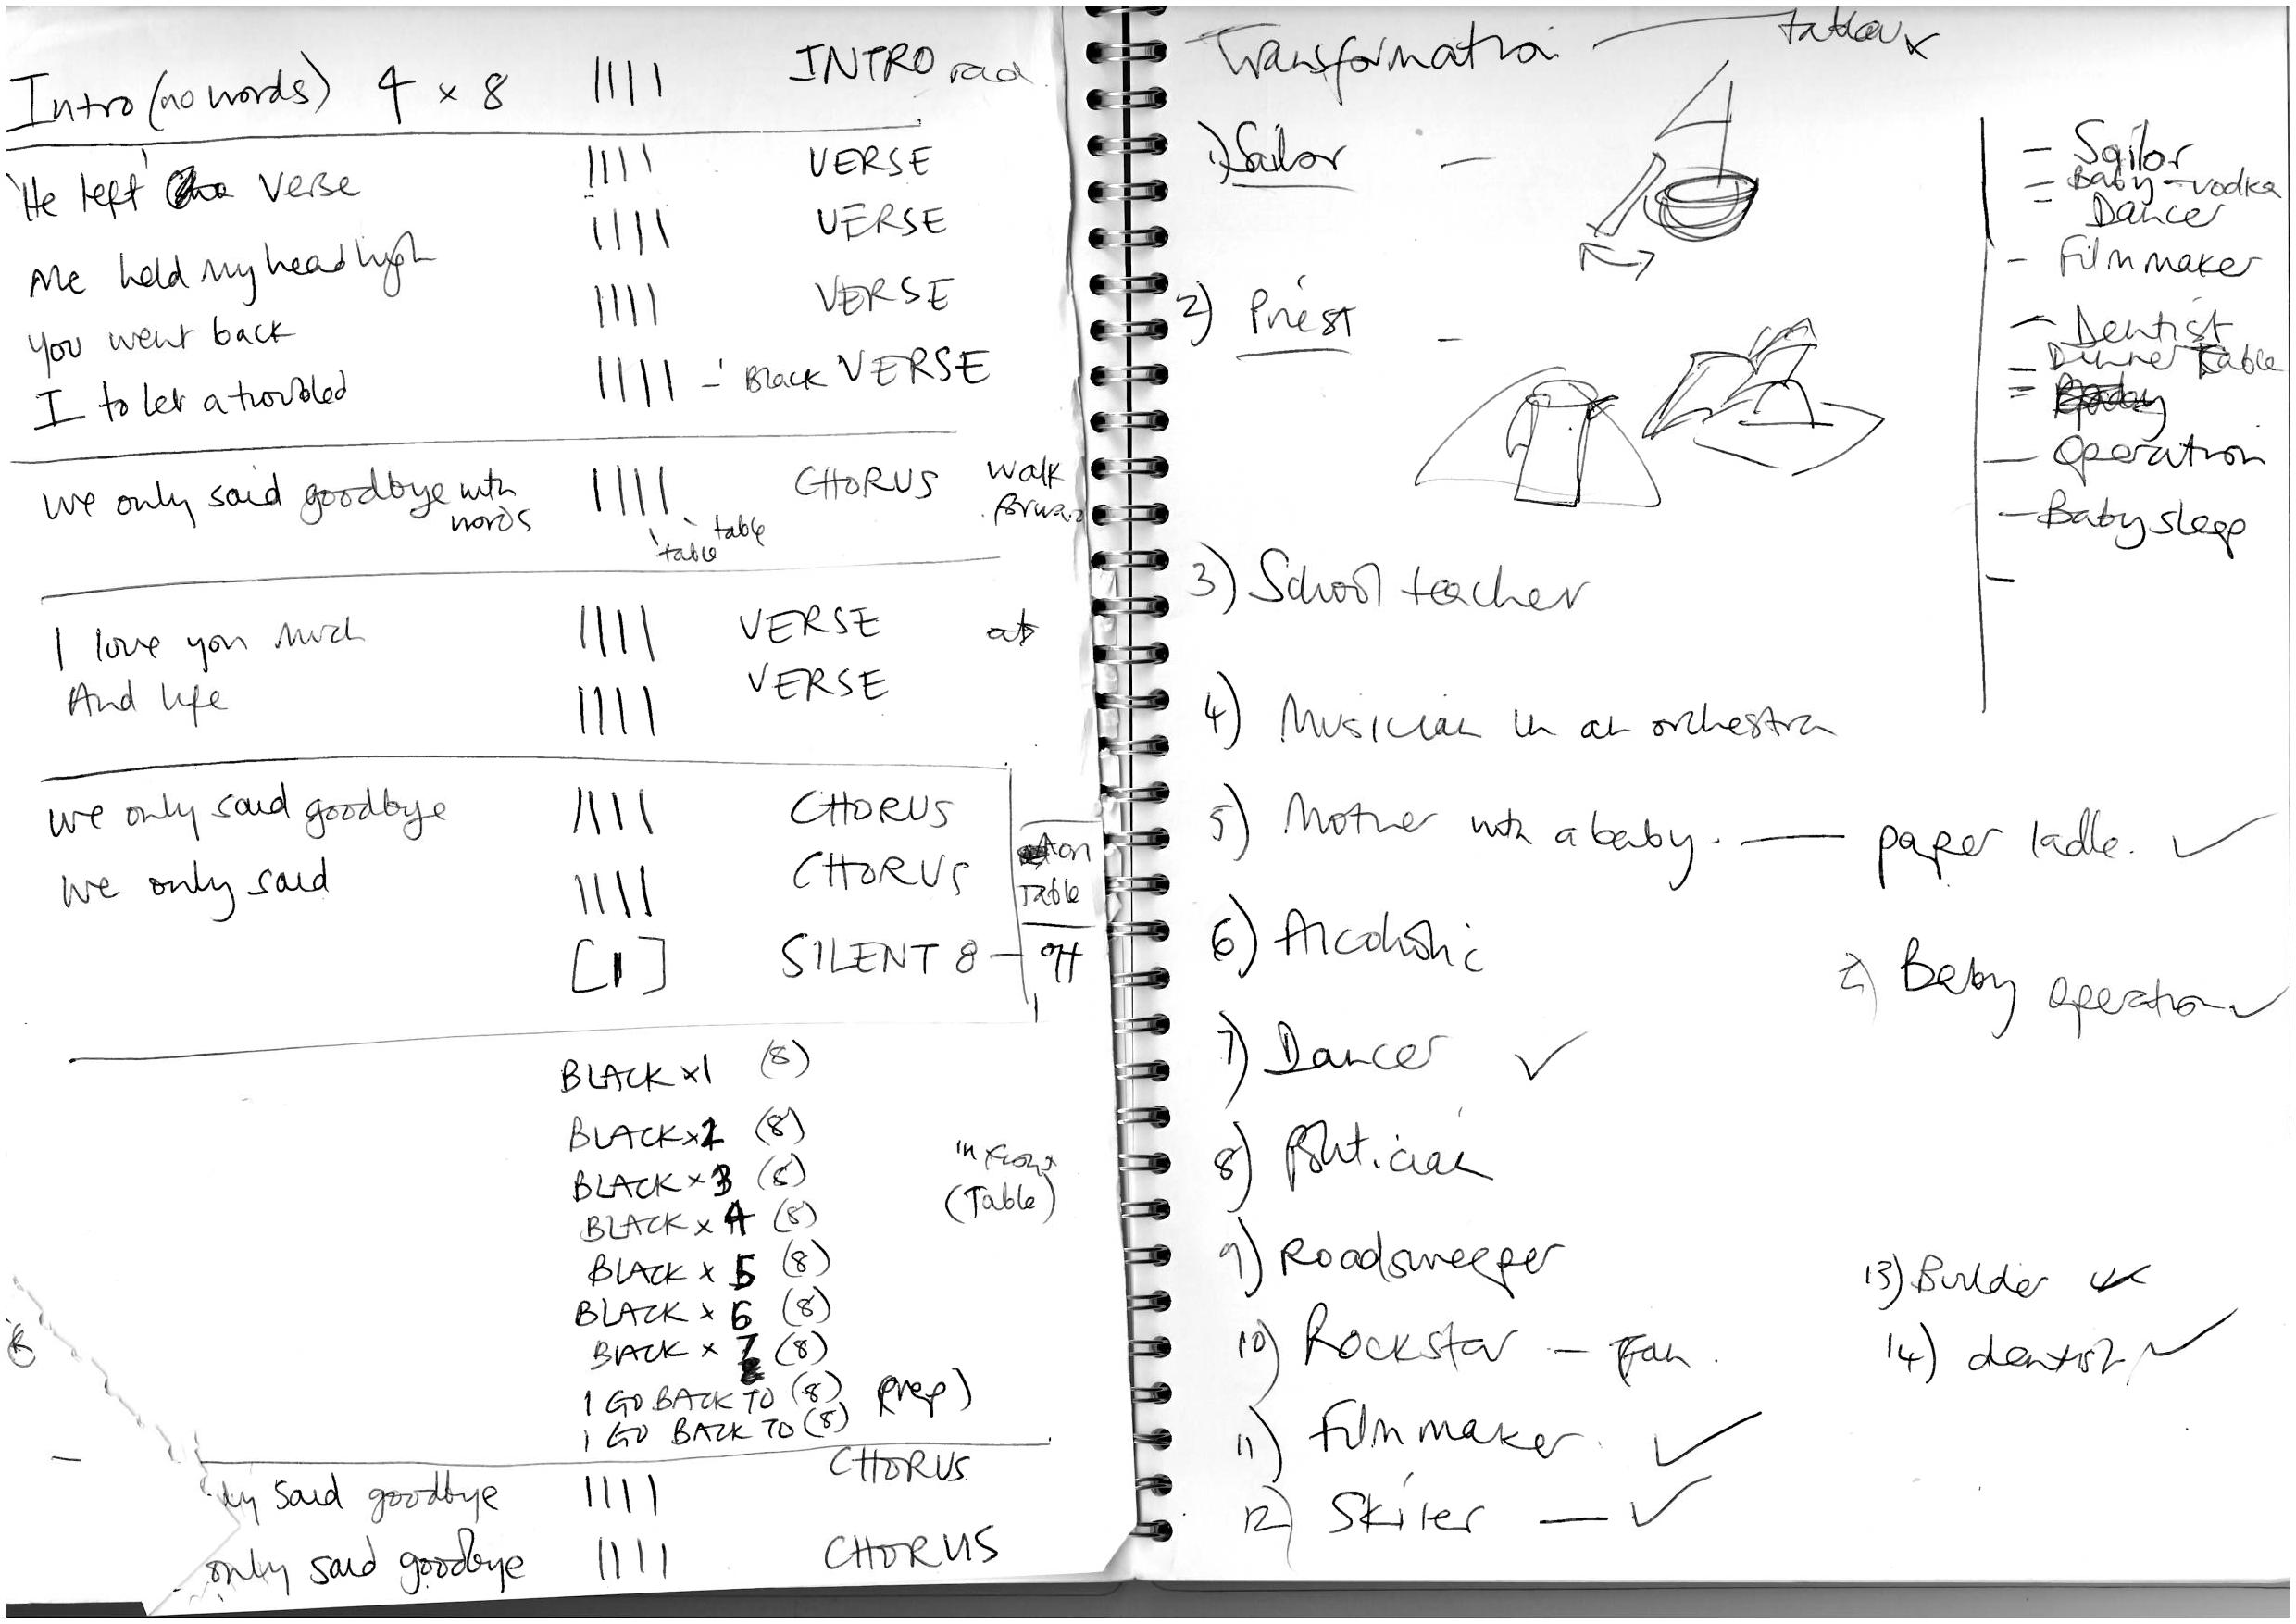 Intro (no words) 4 x 8 |||| INTRO
'He left' Verse |||| VERSE
Me held my head high |||| VERSE
You went back |||| VERSE
I to let a troubled |||| - Black VERSE
we only said goodbye with words |||| CHORUS walk forward
table table
I love you much |||| VERSE
And life |||| VERSE
we only said goodbye |||| CHORUS
we only said |||| CHORUS
on Table
[1] SILENT 8 — off
BLACK x1 (8)
BLACK x2 (8)
BLACK x 3 (8)
BLACK x 4 (8)
BLACK x 5 (8)
BLACK x 6 (8)
BACK x 7 (8)
in front (Table)
I GO BACK TO (8) prep)
I GO BACK TO (8)
CHORUS
ly said goodbye ||||
only said goodbye |||| CHORUS
Transformation — tableaux
1) Sailor —
2) Priest -
3) School teacher
4) Musician in an orchestra
5) Mother with a baby. — paper ladle. ✓
6) Alcoholic
2) Baby operation ✓
7) Dancer ✓
8) Politician
9) Roadsweeper
10) Rockstar — Fan.
11) Filmmaker. ✓
12) Skiier — ✓
13) Builder
14) dentist ✓
- Sailor
= Baby - vodka
Dancer
- Filmmaker
- Dentist
- Dinner Table
- operation
- Baby sleep
-